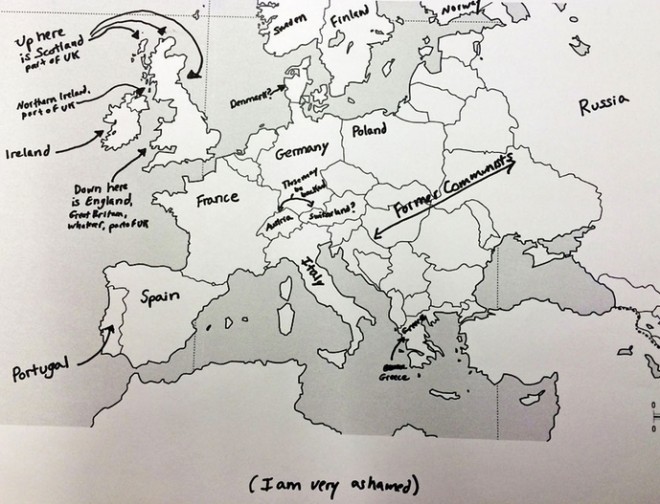 Up here
is Scotland
part of UK
Sweden
Finland
Norway
Northern Ireland,
part of UK
Denmark?
Russia
Ireland
Poland
Germany
Down here
is England,
Great Britain,
whatever, part of UK
France
These may
be backwards
Austria
Switzerland?
Former Communists
Italy
Spain
Portugal
Greece
Greece
(I am very ashamed)